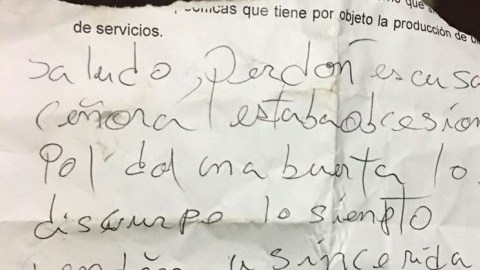 que tiene por objeto la producción de
de servicios.
saludo, perdon escusa
ceñora estaba obcesion
Pol dal una buerta lo
discurpo lo siento
sincerida